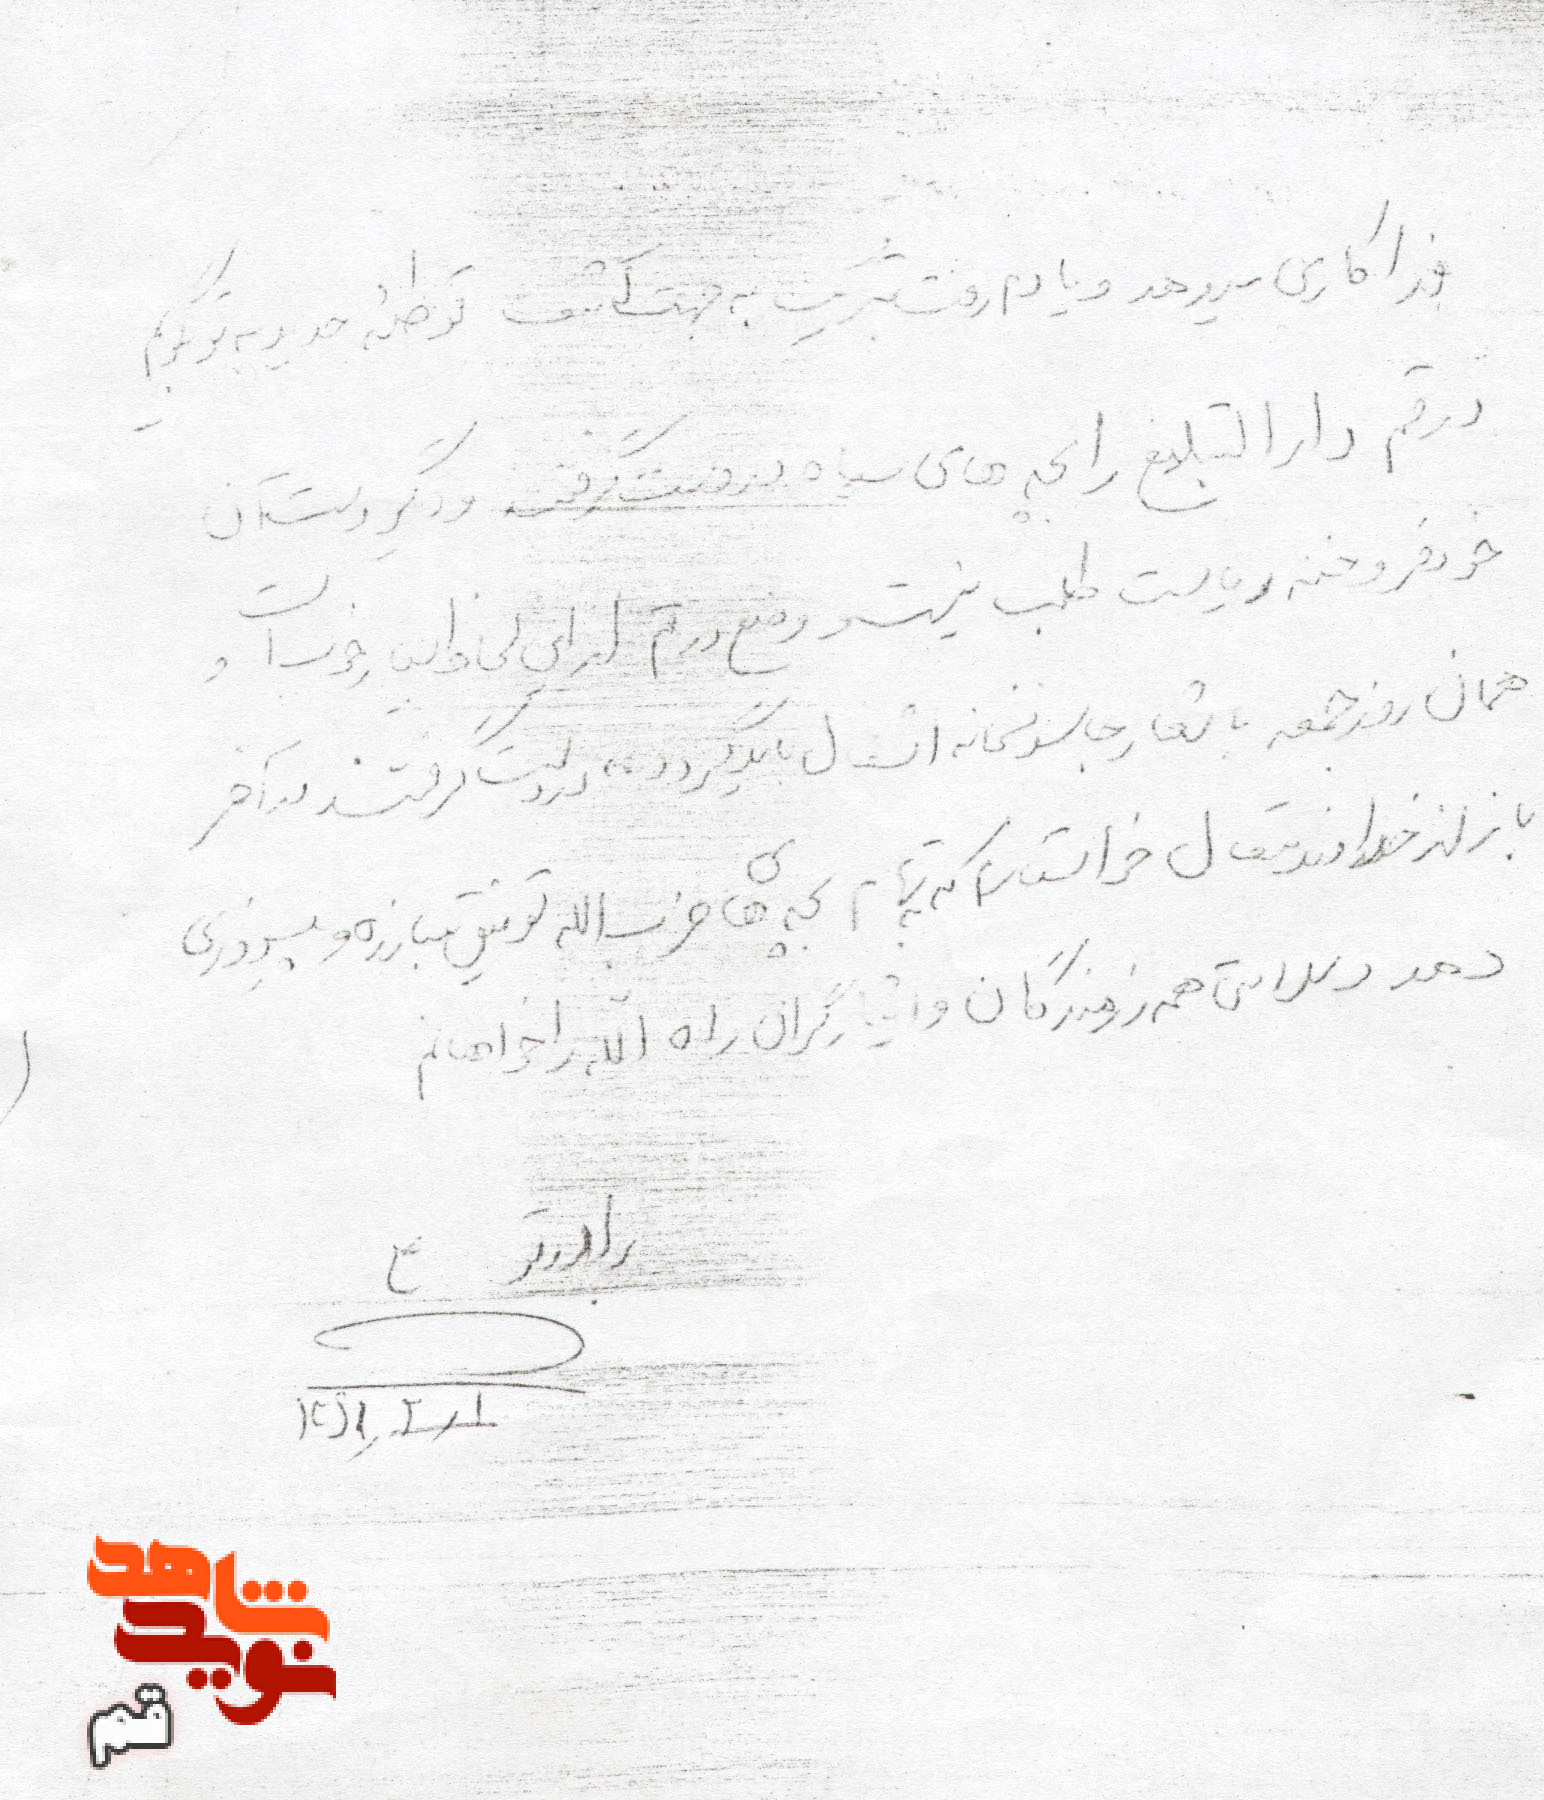 فداکاری میدهد و یادم رفت تبریک به جهت کشف توطئه جدید به تو بگویم
در قم دارالتبلیغ را بچه های سپاه بدست گرفتند و دیگر دست آن
خود فروخته ریاست طلب نیست و وضع در قم از این لحاظ بسیار خوب است و
همان روز جمعه با شعار جاسوسخانه اشغال باید گردد در دست گرفتند در آخر
باز از خداوند متعال خواستارم که تمام بچه های حزب الله توفیق مبارزه و پیروزی
دهد و سلامتی همه رزمندگان و ایثارگران راه الله را خواهانم
برادر تو ع
۱۳۶۱/۲/۱
شاهد
نوید
قم